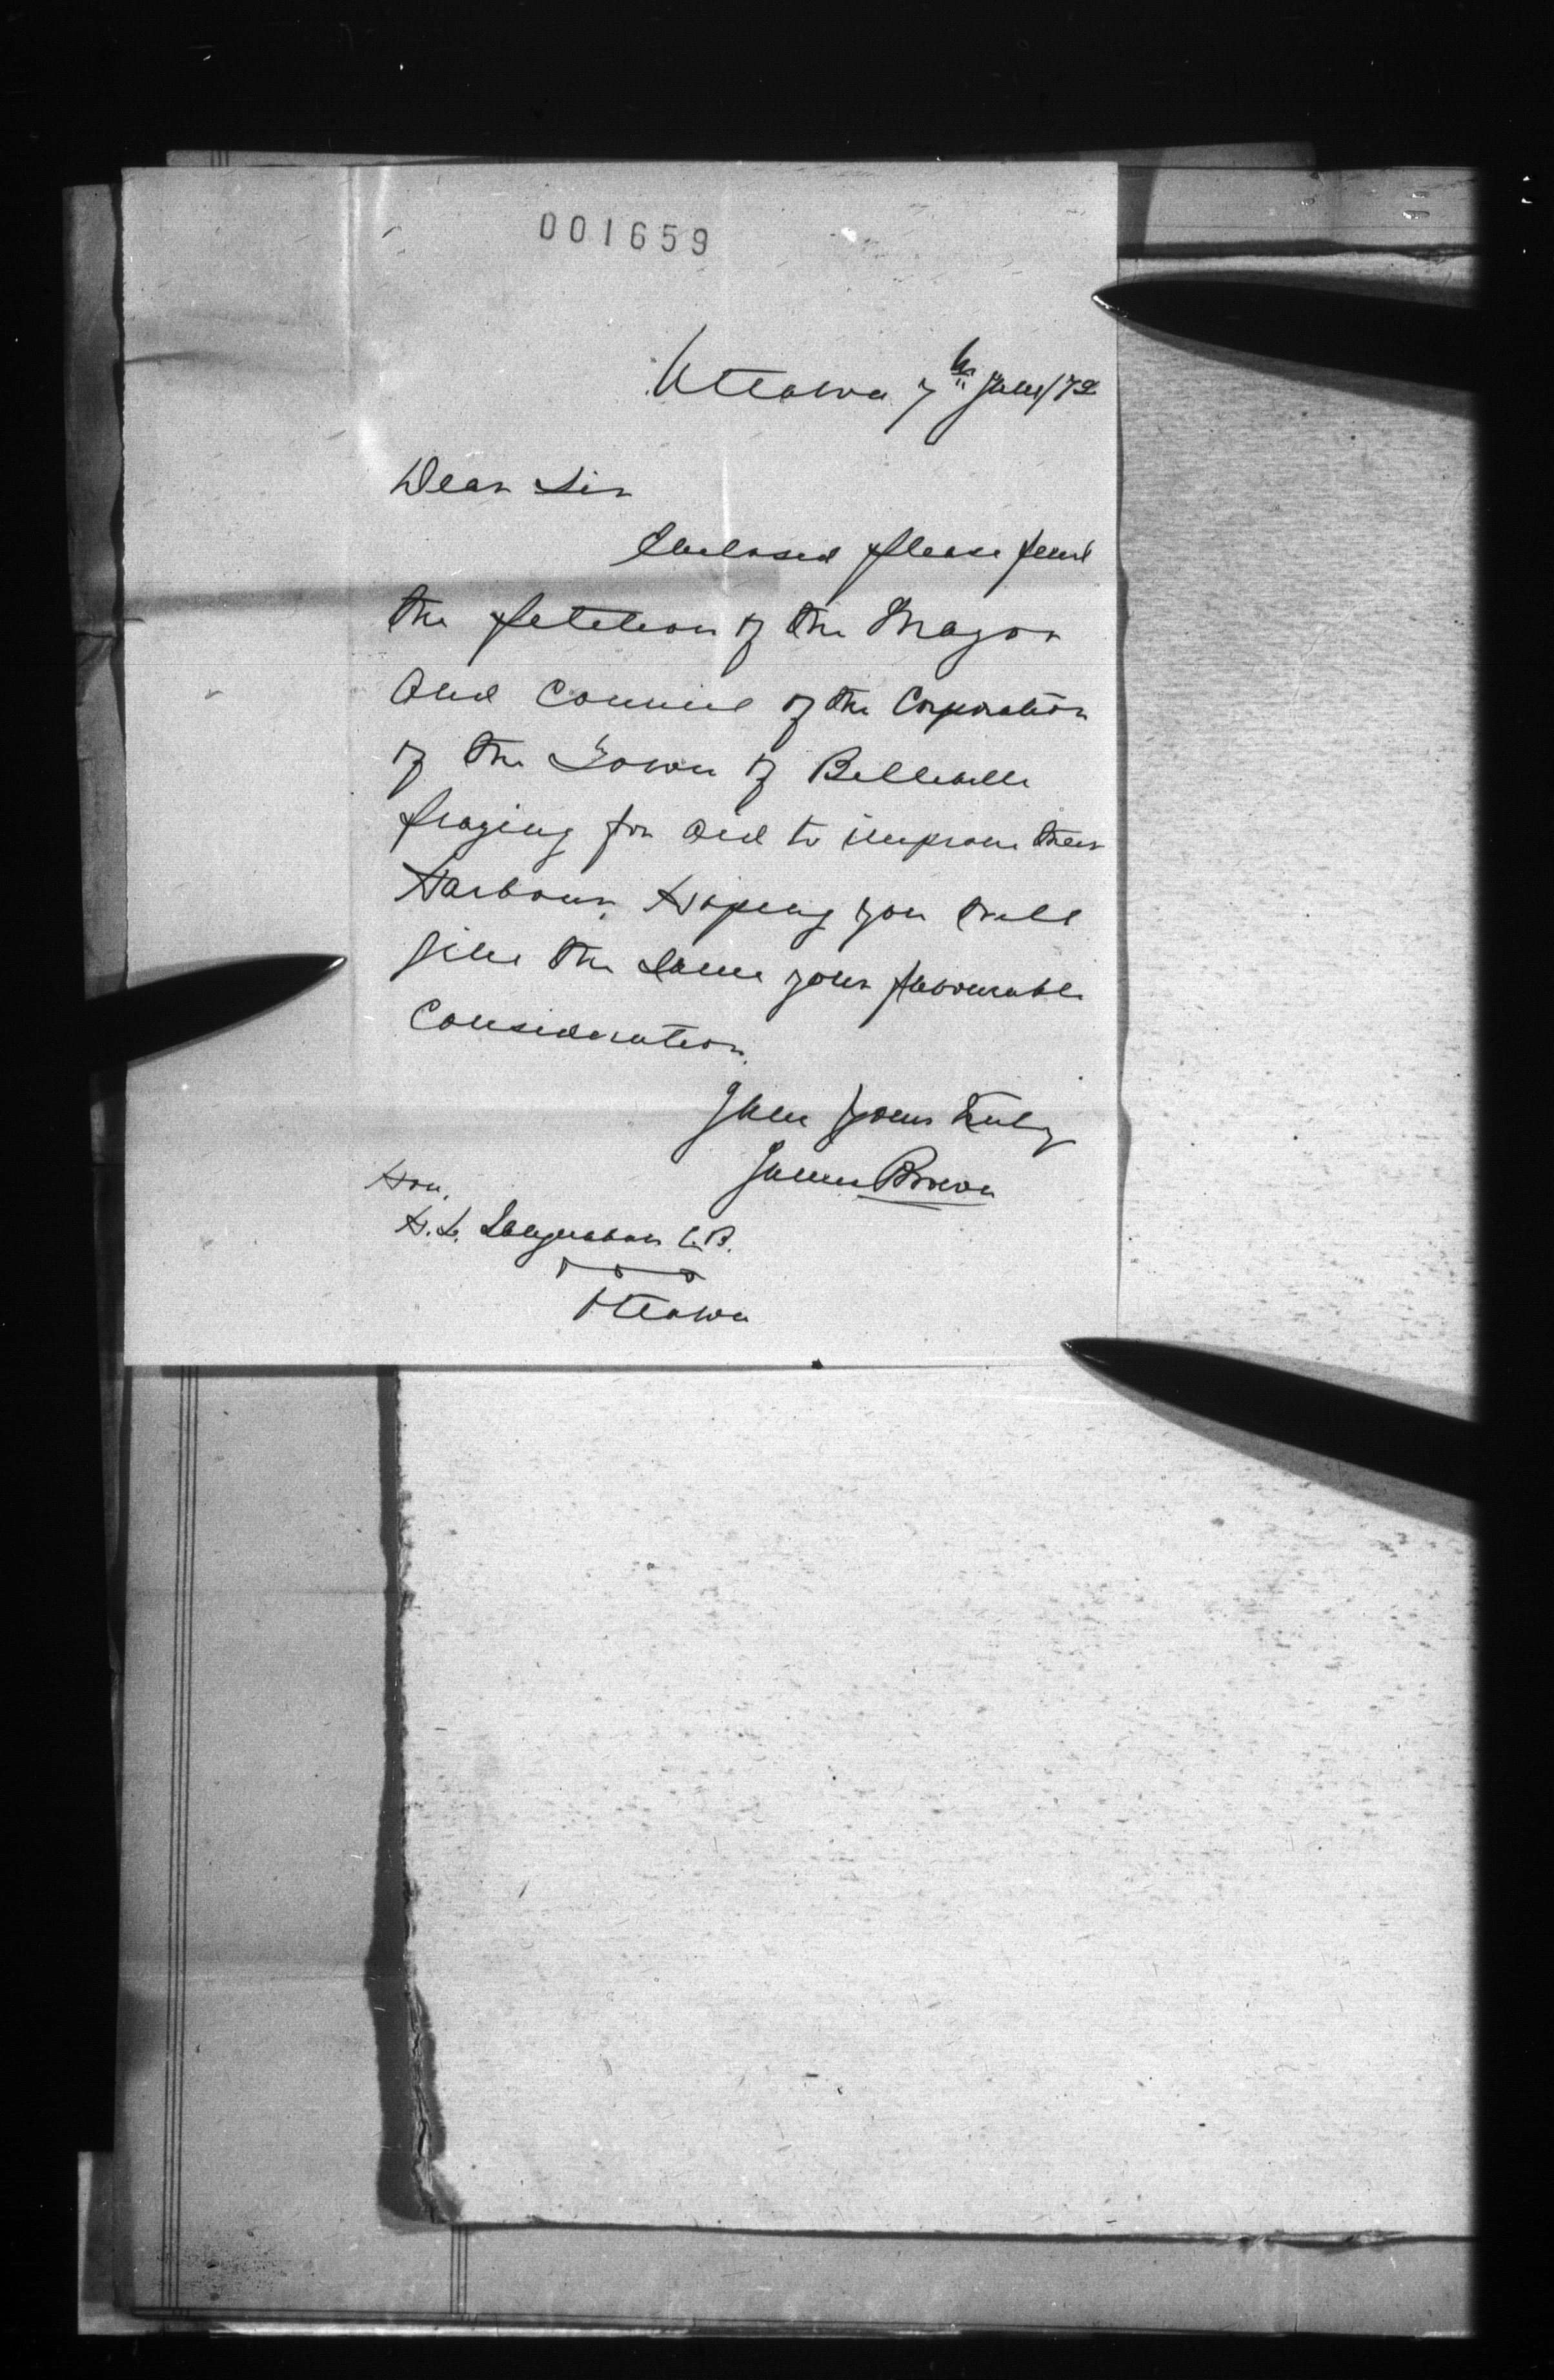 001659
Ottawa 7th June/72
Dear Sir
Enclosed please find
the petition of the Mayor
and Council of the Corporation
of the Town of Belleville
praying for aid to improve their
Harbour. Hoping you will
give the same your favourable
Consideration.
I am Yours Truly
James Brown
Hon.
H. L. Langevin C.B.
Ottawa